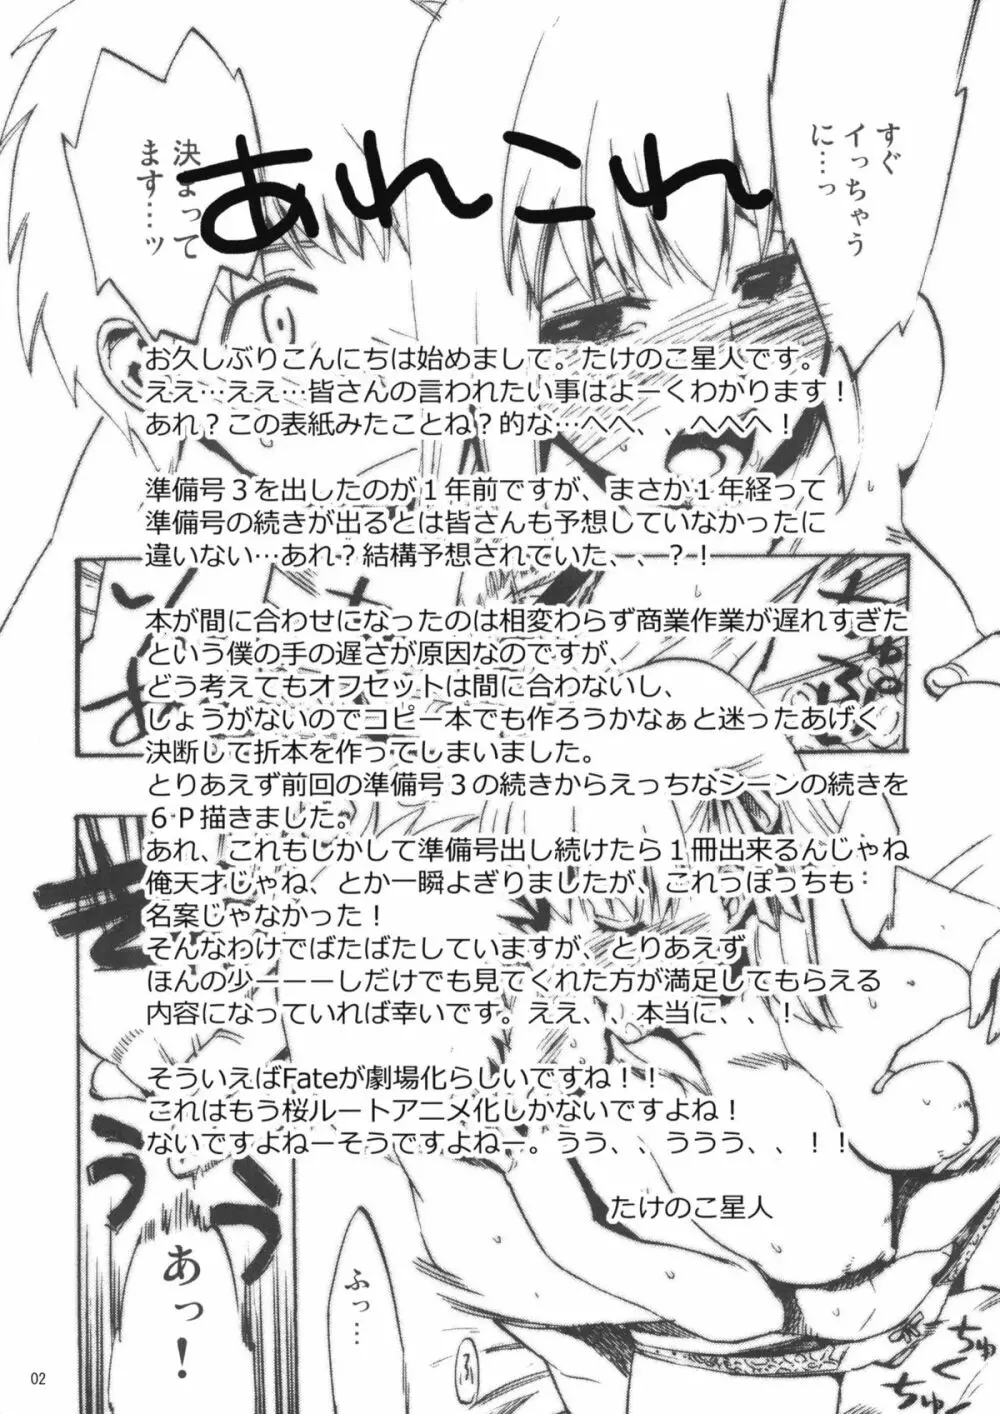 すぐ
イっちゃう
に…っ
決まって
ます…ッ
あれこれ
お久しぶりこんにちは始めまして。たけのこ星人です。
ええ…ええ…皆さんの言われたい事はよーくわかります！
あれ？この表紙みたことね？的な…へへ、、へへへ！
準備号３を出したのが１年前ですが、まさか１年経って
準備号の続きが出るとは皆さんも予想していなかったに
違いない…あれ？結構予想されていた、、、？！
本が間に合わせになったのは相変わらず商業作業が遅れすぎた
という僕の手の遅さが原因なのですが、
どう考えてもオフセットは間に合わないし、
しょうがないのでコピー本でも作ろうかなぁと迷ったあげく
決断して折本を作ってしまいました。
とりあえず前回の準備号３の続きからえっちなシーンの続きを
６Ｐ描きました。
あれ、これもしかして準備号出し続けたら１冊出来るんじゃね
俺天才じゃね、とか一瞬よぎりましたが、これっぽっちも
名案じゃなかった！
そんなわけでばたばたしていますが、とりあえず
ほんの少ーーーしだけでも見てくれた方が満足してもらえる
内容になっていれば幸いです。ええ、、本当に、、！
そういえばFateが劇場化らしいですね！！
これはもう桜ルートアニメ化しかないですよね！
ないですよねーそうですよねー。うう、、ううう、、！！
たけのこ星人
あっ！
ふっ…
ちゅく
ちゅく
02